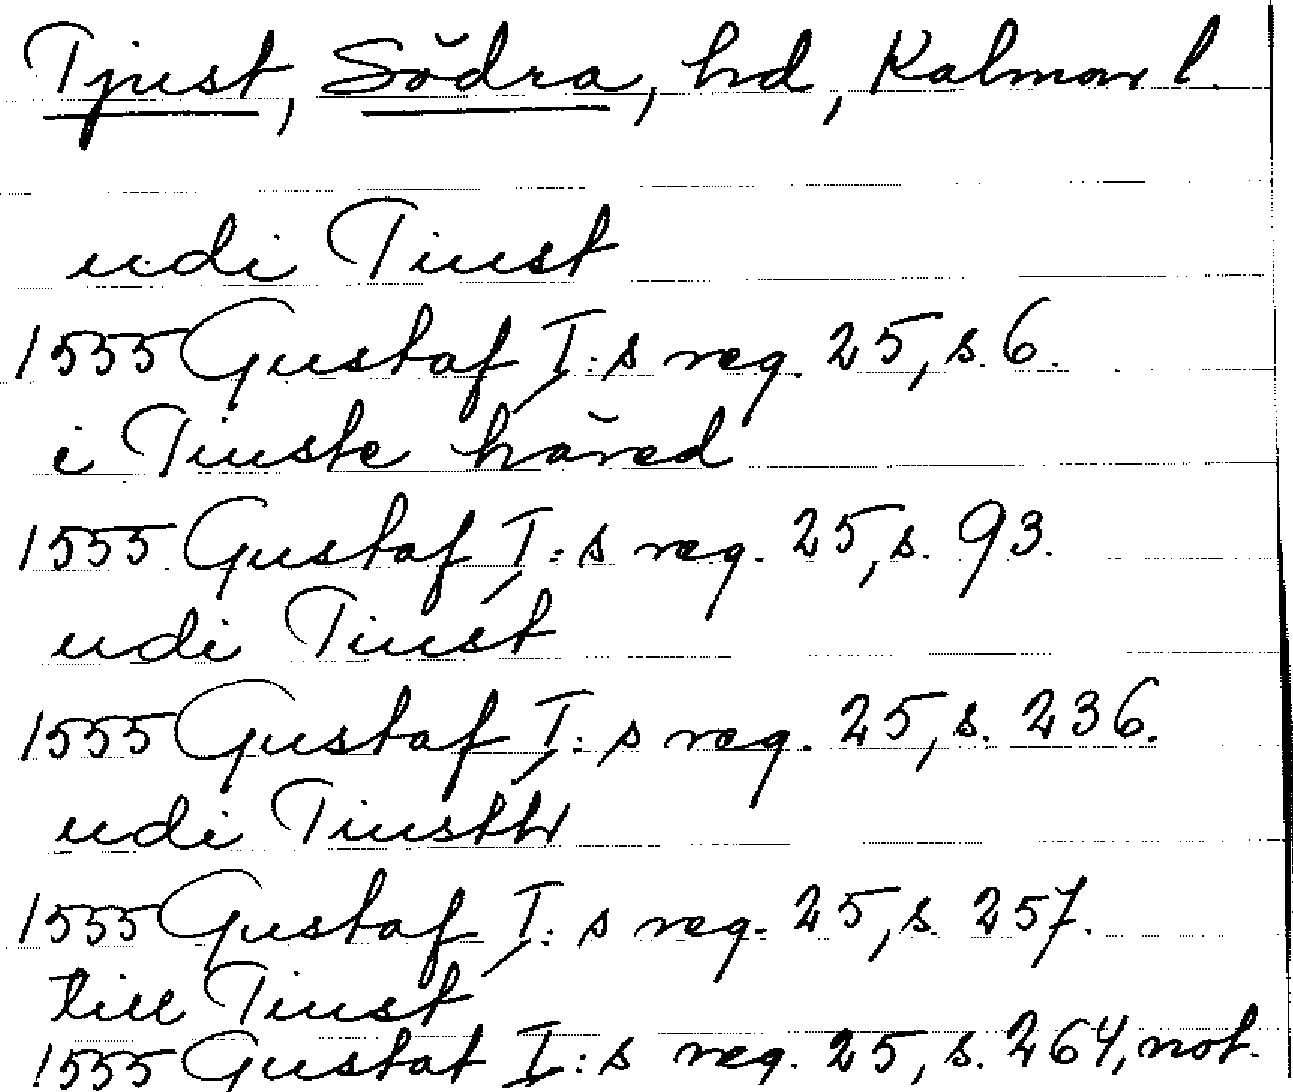 Tjust, Södra, hd, Kalmar l.
udi Tiust
1555 Gustaf I:s reg. 25, s. 6.
i Tiuste häred
1555 Gustaf I:s reg. 25, s. 93.
udi Tiust
1555 Gustaf I:s reg. 25, s. 236.
udi Tiustth
1555 Gustaf I:s reg. 25, s. 257.
till Tiust
1555 Gustaf I:s reg. 25, s. 264, not.